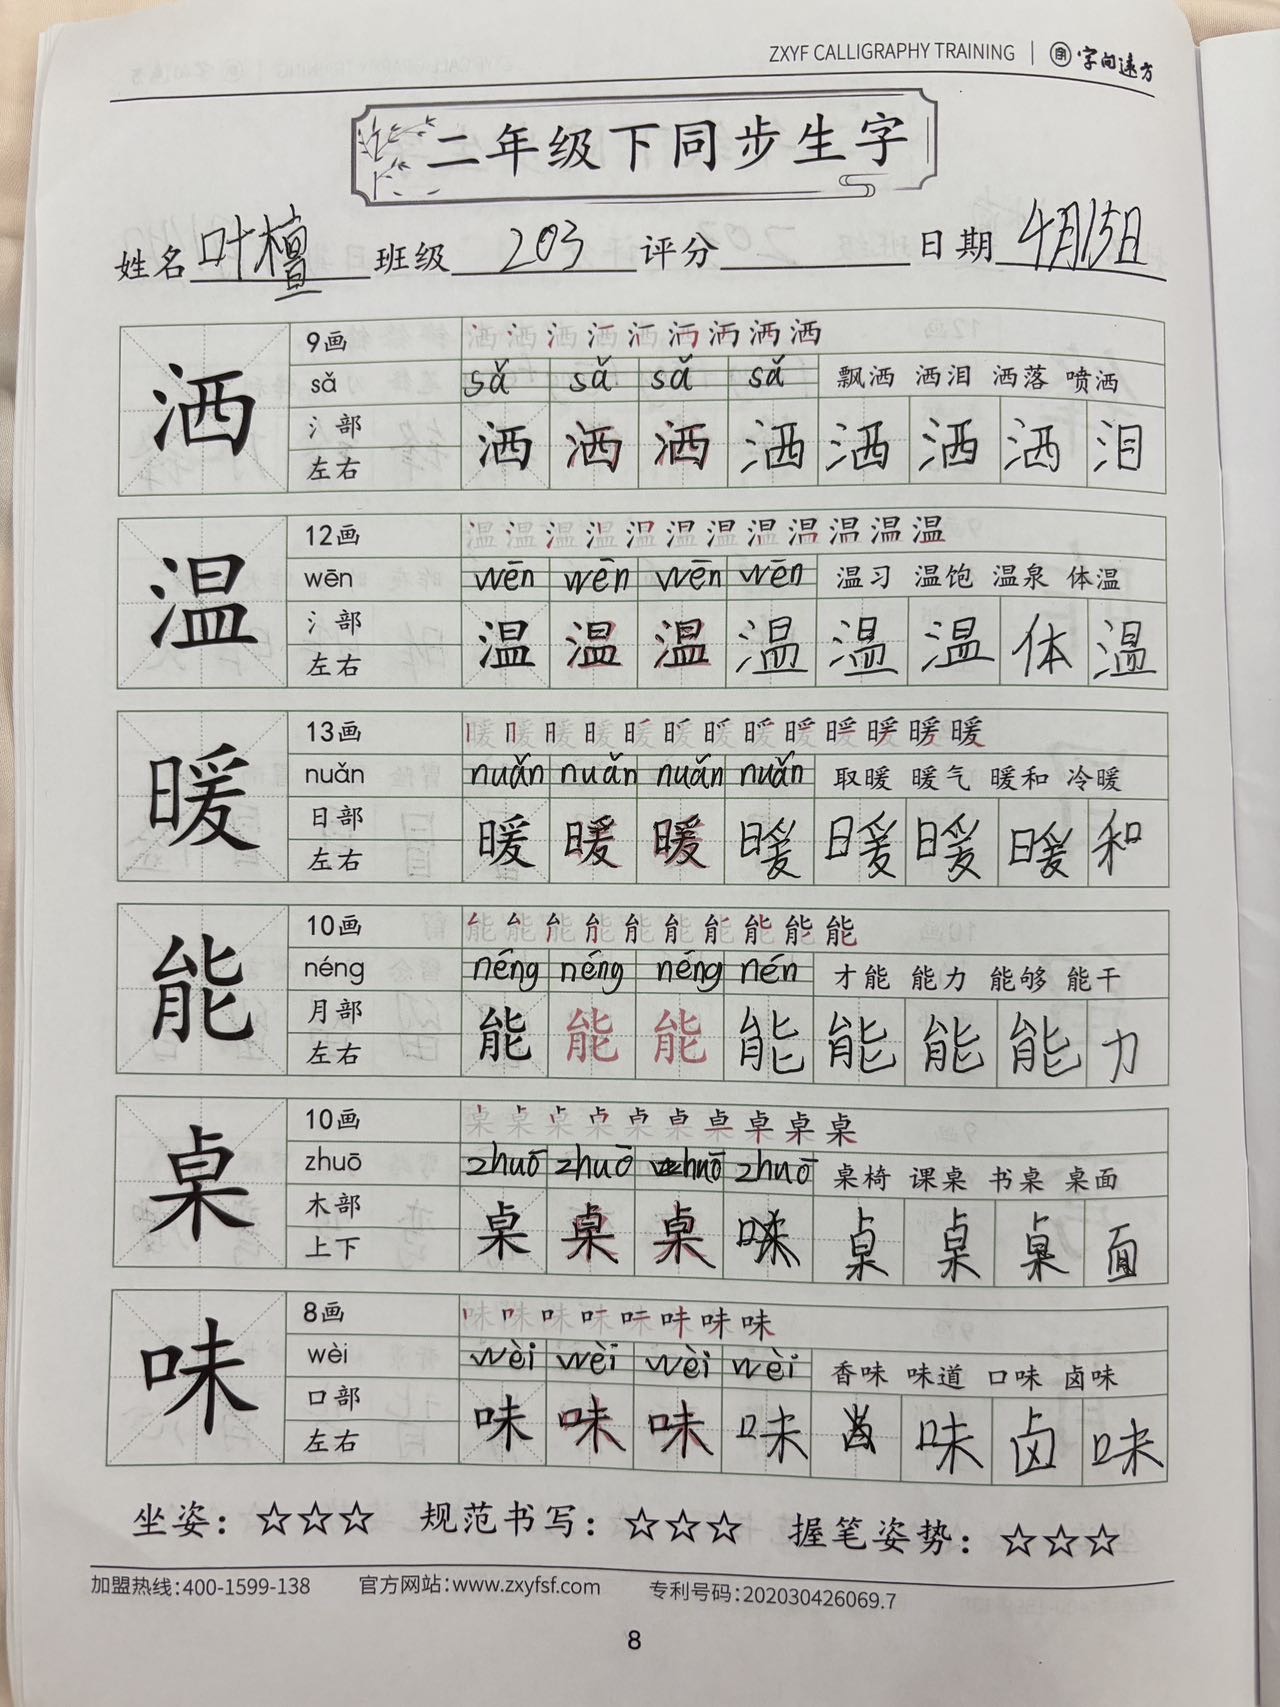 ZXYF CALLIGRAPHY TRAINING | 字向远方
二年级下同步生字
姓名 叶檀 班级 203 评分 日期 4月15日
洒 9画 洒 洒 洒 洒 洒 洒 洒 洒 洒
sǎ sǎ sǎ sǎ sǎ 飘洒 洒泪 洒落 喷洒
氵部 左右 洒 洒 洒 洒 洒 洒 洒 泪
温 12画 温 温 温 温 温 温 温 温 温 温 温 温
wēn wēn wēn wēn wēn 温习 温饱 温泉 体温
氵部 左右 温 温 温 温 温 温 体 温
暖 13画 暖 暖 暖 暖 暖 暖 暖 暖 暖 暖 暖 暖 暖
nuǎn nuǎn nuǎn nuǎn nuǎn 取暖 暖气 暖和 冷暖
日部 左右 暖 暖 暖 暖 暖 暖 暖 和
能 10画 能 能 能 能 能 能 能 能 能 能
néng néng néng néng nén 才能 能力 能够 能干
月部 左右 能 能 能 能 能 能 能 力
桌 10画 桌 桌 桌 桌 桌 桌 桌 桌 桌 桌
zhuō zhuō zhuō zhuō zhuō 桌椅 课桌 书桌 桌面
木部 上下 桌 桌 桌 味 桌 桌 桌 面
味 8画 味 味 味 味 味 味 味 味
wèi wèi wèi wèi wèi 香味 味道 口味 卤味
口部 左右 味 味 味 味 味 卤 味
坐姿：☆☆☆ 规范书写：☆☆☆ 握笔姿势：☆☆☆
加盟热线:400-1599-138 官方网站:www.zxyfsf.com 专利号码:202030426069.7
8